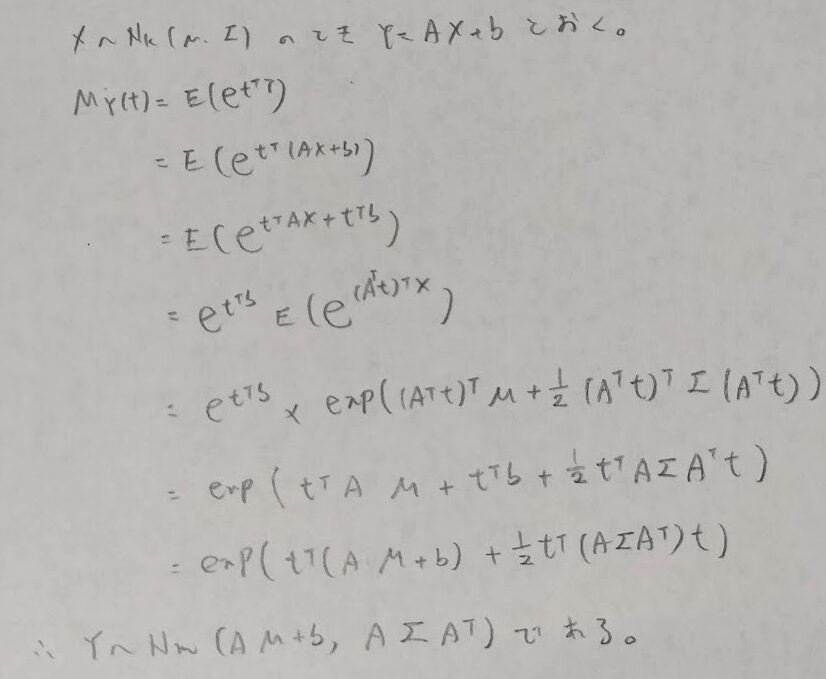 X ~ N_k (μ, Σ) のとき Y = AX + b とおく。
M_Y(t) = E(e^{t^T Y})
= E(e^{t^T (AX+b)})
= E(e^{t^T AX + t^T b})
= e^{t^T b} E(e^{(A^T t)^T X})
= e^{t^T b} × exp((A^T t)^T μ + 1/2 (A^T t)^T Σ (A^T t))
= exp(t^T A μ + t^T b + 1/2 t^T A Σ A^T t)
= exp(t^T (A μ + b) + 1/2 t^T (A Σ A^T) t)
∴ Y ~ N_m (A μ + b, A Σ A^T) である。